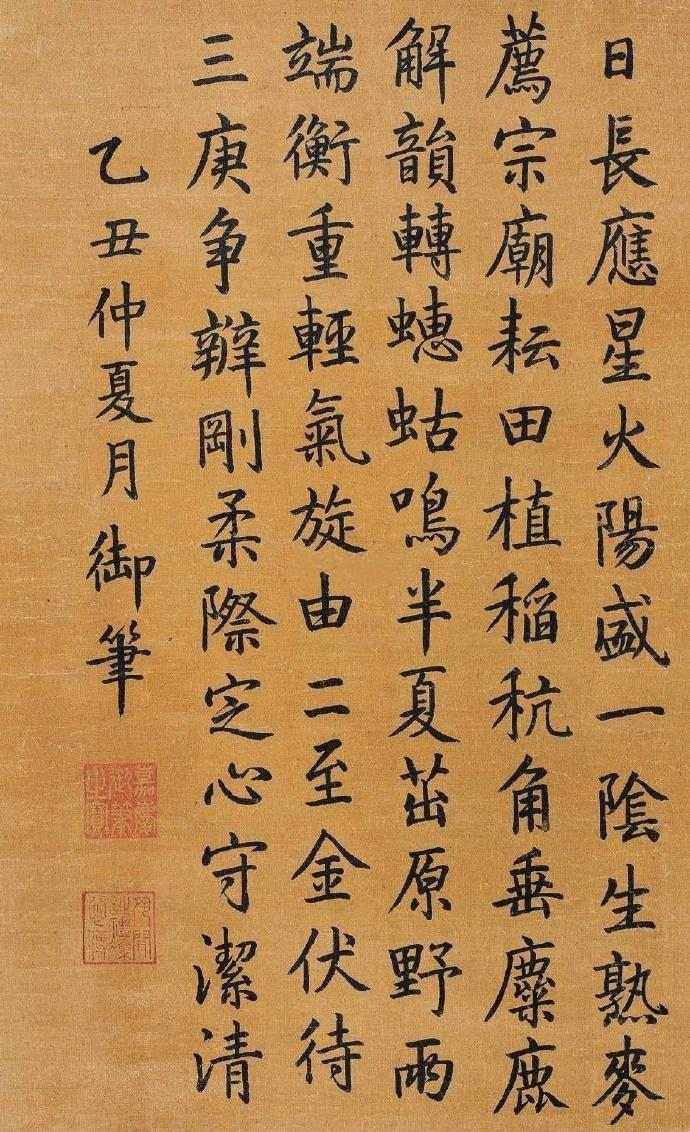 日長應星火陽盛一陰生熟麥
薦宗廟耘田植稻秔角垂麋鹿
解韻轉蟪蛄鳴半夏茁原野雨
端衡重輕氣旋由二至金伏待
三庚争辨剛柔際定心守潔清
乙丑仲夏月御筆
嘉慶
御筆
之寶